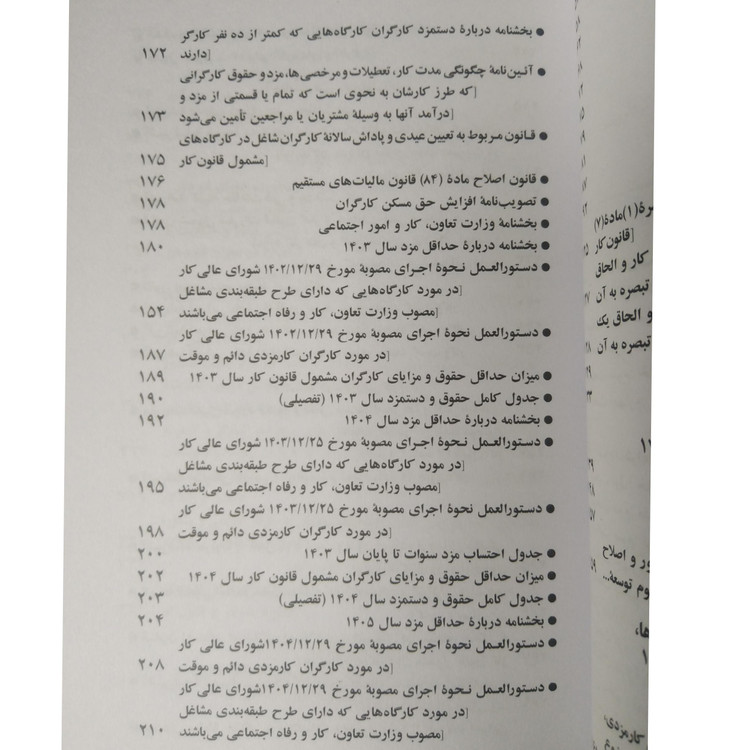 ● بخشنامه دربارهٔ دستمزد کارگران کارگاه‌هایی که کمتر از ده نفر کارگر
[دارند ۱۷۲
● آئین‌نامهٔ چگونگی مدت کار، تعطیلات و مرخصی‌ها، مزد و حقوق کارگرانی
[که طرز کارشان به نحوی است که تمام یا قسمتی از مزد و
[درآمد آنها به وسیلهٔ مشتریان یا مراجعین تأمین می‌شود ۱۷۳
● قانون مربوط به تعیین عیدی و پاداش سالانهٔ کارگران شاغل در کارگاه‌های
[مشمول قانون کار ۱۷۵
● قانون اصلاح مادهٔ (۸۴) قانون مالیات‌های مستقیم ۱۷۶
● تصویب‌نامهٔ افزایش حق مسکن کارگران ۱۷۸
● بخشنامهٔ وزارت تعاون، کار و امور اجتماعی ۱۷۸
● بخشنامه دربارهٔ حداقل مزد سال ۱۴۰۳ ۱۸۰
● دستورالعمل نحوهٔ اجرای مصوبهٔ مورخ ۱۴۰۲/۱۲/۲۹ شورای عالی کار
[در مورد کارگاه‌هایی که دارای طرح طبقه‌بندی مشاغل
[مصوب وزارت تعاون، کار و رفاه اجتماعی می‌باشند ۱۵۴
● دستورالعمل نحوهٔ اجرای مصوبهٔ مورخ ۱۴۰۲/۱۲/۲۹ شورای عالی کار
[در مورد کارگران کارمزدی دائم و موقت ۱۸۷
● میزان حداقل حقوق و مزایای کارگران مشمول قانون کار سال ۱۴۰۳ ۱۸۹
● جدول کامل حقوق و دستمزد سال ۱۴۰۳ (تفصیلی) ۱۹۰
● بخشنامه دربارهٔ حداقل مزد سال ۱۴۰۴ ۱۹۲
● دستورالعمل نحوهٔ اجرای مصوبهٔ مورخ ۱۴۰۳/۱۲/۲۵ شورای عالی کار
[در مورد کارگاه‌هایی که دارای طرح طبقه‌بندی مشاغل
[مصوب وزارت تعاون، کار و رفاه اجتماعی می‌باشند ۱۹۵
● دستورالعمل نحوهٔ اجرای مصوبهٔ مورخ ۱۴۰۳/۱۲/۲۵ شورای عالی کار
[در مورد کارگران کارمزدی دائم و موقت ۱۹۸
● جدول احتساب مزد سنوات تا پایان سال ۱۴۰۳ ۲۰۰
● میزان حداقل حقوق و مزایای کارگران مشمول قانون کار سال ۱۴۰۴ ۲۰۲
● جدول کامل حقوق و دستمزد سال ۱۴۰۴ (تفصیلی) ۲۰۳
● بخشنامه دربارهٔ حداقل مزد سال ۱۴۰۵ ۲۰۴
● دستورالعمل نحوهٔ اجرای مصوبهٔ مورخ ۱۴۰۴/۱۲/۲۹شورای عالی کار
[در مورد کارگران کارمزدی دائم و موقت ۲۰۸
● دستورالعمل نحوهٔ اجرای مصوبهٔ مورخ ۱۴۰۴/۱۲/۲۹شورای عالی کار
[در مورد کارگاه‌هایی که دارای طرح طبقه‌بندی مشاغل
[مصوب وزارت تعاون، کار و رفاه اجتماعی می‌باشند ۲۱۰
(۱)مادهٔ (۷)
[قانون کار
کار و الحاق
تبصره به آن
و الحاق یک
تبصره به آن
و اصلاح
توسعهٔ...
کارمزدی،